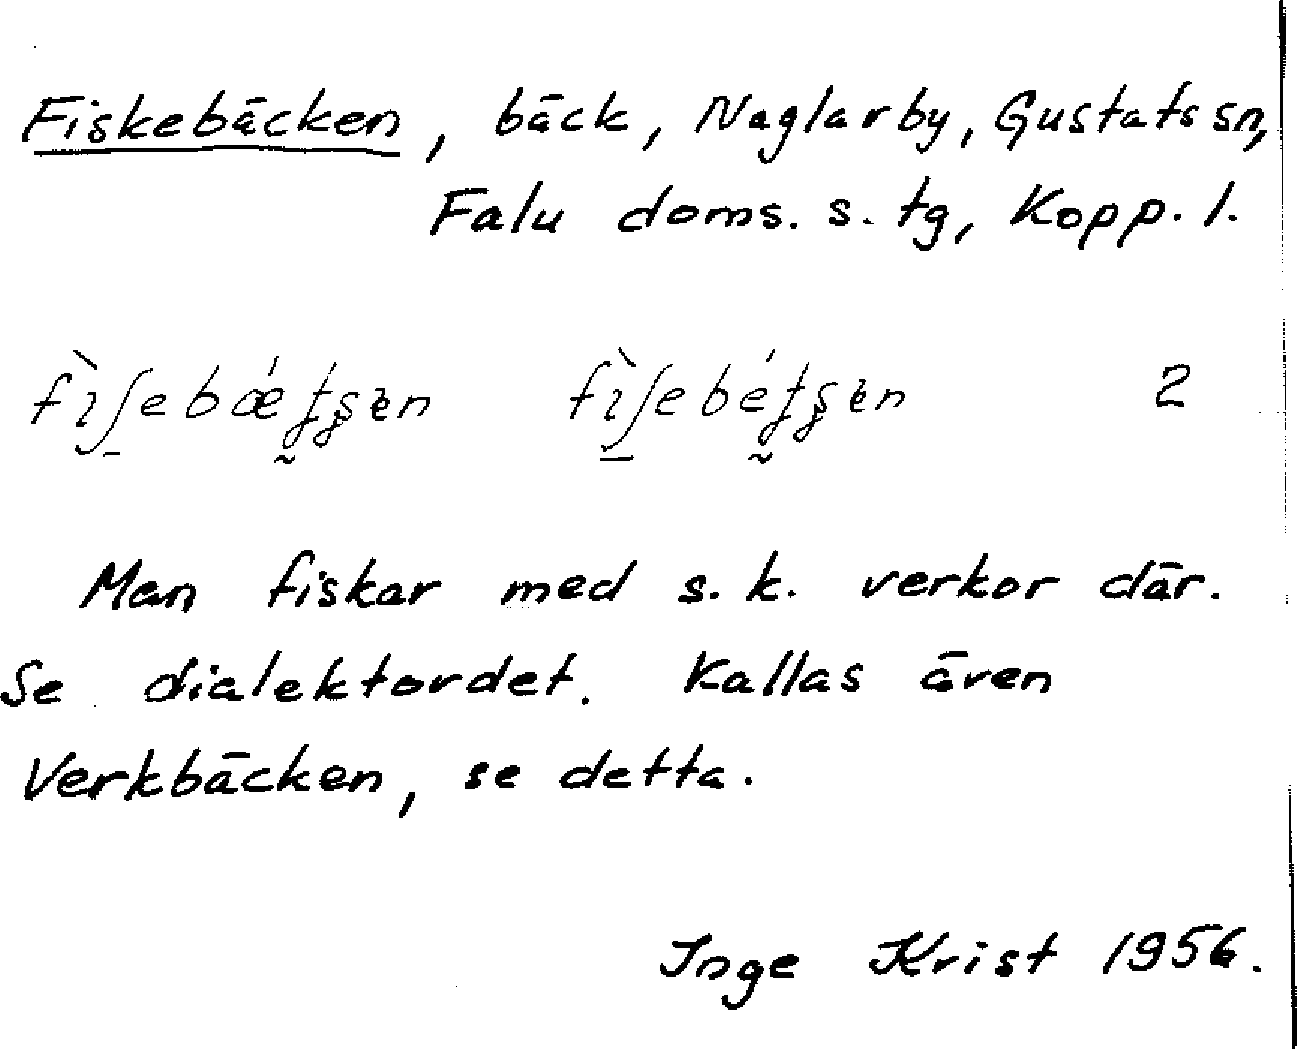 Fiskebäcken, bäck, Naglarby, Gustafs sn,
Falu doms. s. tg, Kopp. l.
2
Man fiskar med s. k. verkor där.
Se dialektordet. Kallas även
Verkbäcken, se detta.
Inge Krist 1956.